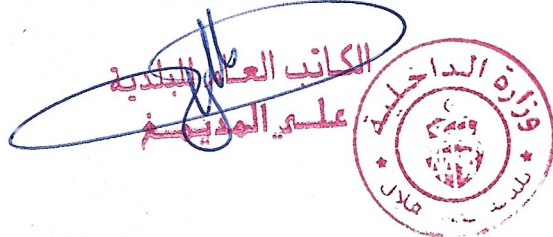 الكاتب العام للبلدية
علي المديمغ
وزارة الداخلية
بلدية قصر هلال